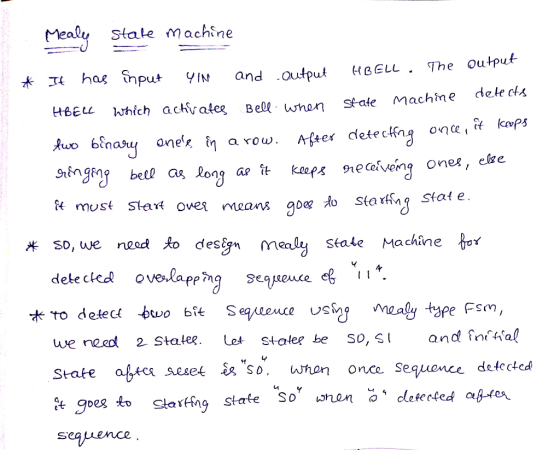 Mealy State Machine
* It has input YIN and output HBELL. The output
HBELL which activates Bell when state Machine detects
two binary one's in a row. After detecting once, it keeps
ringing bell as long as it keeps receiveing ones, else
it must start over means goes to starting state.
* SO, we need to design mealy state Machine for
detected overlapping sequence of "11".
* To detect two bit Sequence using mealy type FSM,
we need 2 states. Let states be S0, S1 and initial
State after reset is "S0". When once sequence detected
it goes to starting state "S0" when "0" detected after
sequence.